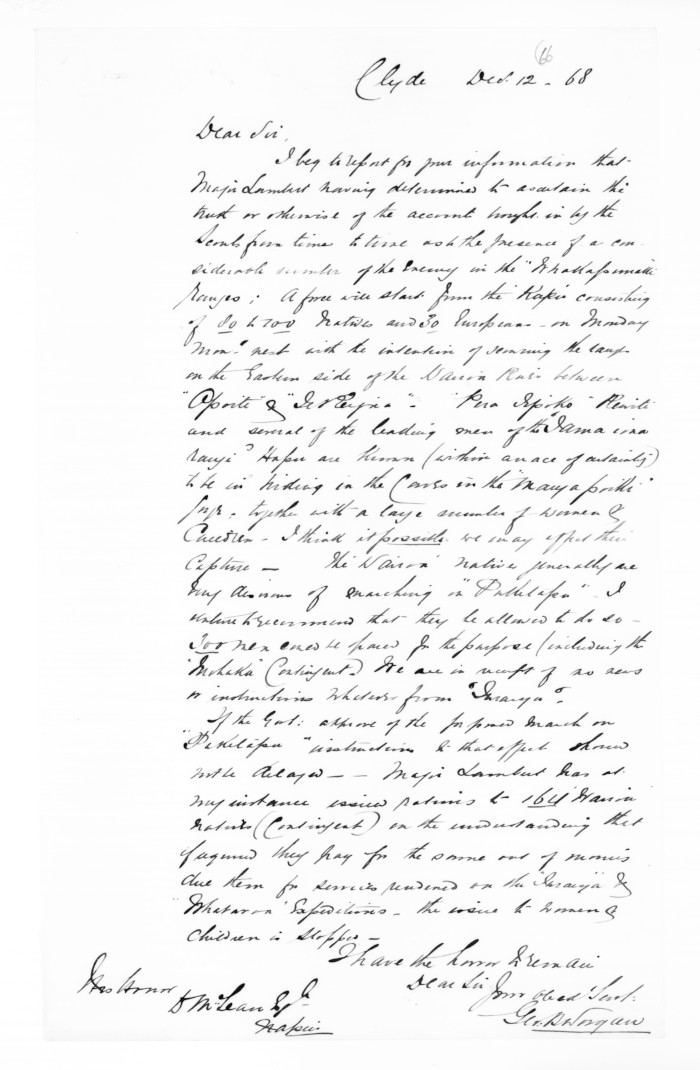 66
Clyde Decr. 12 - 68
Dear Sir,
I beg to report for your information that
Major Lambert having determined to ascertain the
truth or otherwise of the account brought in by the
Scouts from time to time as to the presence of a con-
siderable number of the Enemy in the "Whakapunaki
Ranges; A force will start from the Kapu consisting
of 80 to 100 Natives and 30 Europeans - on Monday
Morng. next with the intention of scouring the range
on the Eastern side of the Wairoa River between
"Opoiti" & "Te Reinga" - "Pera Tipoko" Rewiti
and several of the leading men of the "Tama iona
rangi" Hapu are known (within an ace of certainty)
to be in hiding in the Caves in the "Mangapoiki"
Gorge, together with a large number of women &
Children - I think it possible we may effect their
Capture - The Wairoa natives generally are
very desirous of marching on "Puketapu" - I
venture to recommend that they be allowed to do so -
300 men could be spared for the purpose (including the
"Mohaka" Contingent) We are in receipt of no news
or instructions whatever from "Turanga".
If the Govt: approve of the proposed march on
"Puketapu" instructions to that effect should
not be delayed - - Major Lambert has at
my instance issued rations to 164 Wairoa
Natives (Contingent) on the understanding that
if required they pay for the same out of monies
due them for services rendered on the "Turanga" &
"Whataroa" Expeditions - the issue to women &
children is stopped -
I have the honor to remain
Dear Sir
Your Obed. Servt.
Geo. B. Worgan
His Honor
D McLean Esqre
Napier